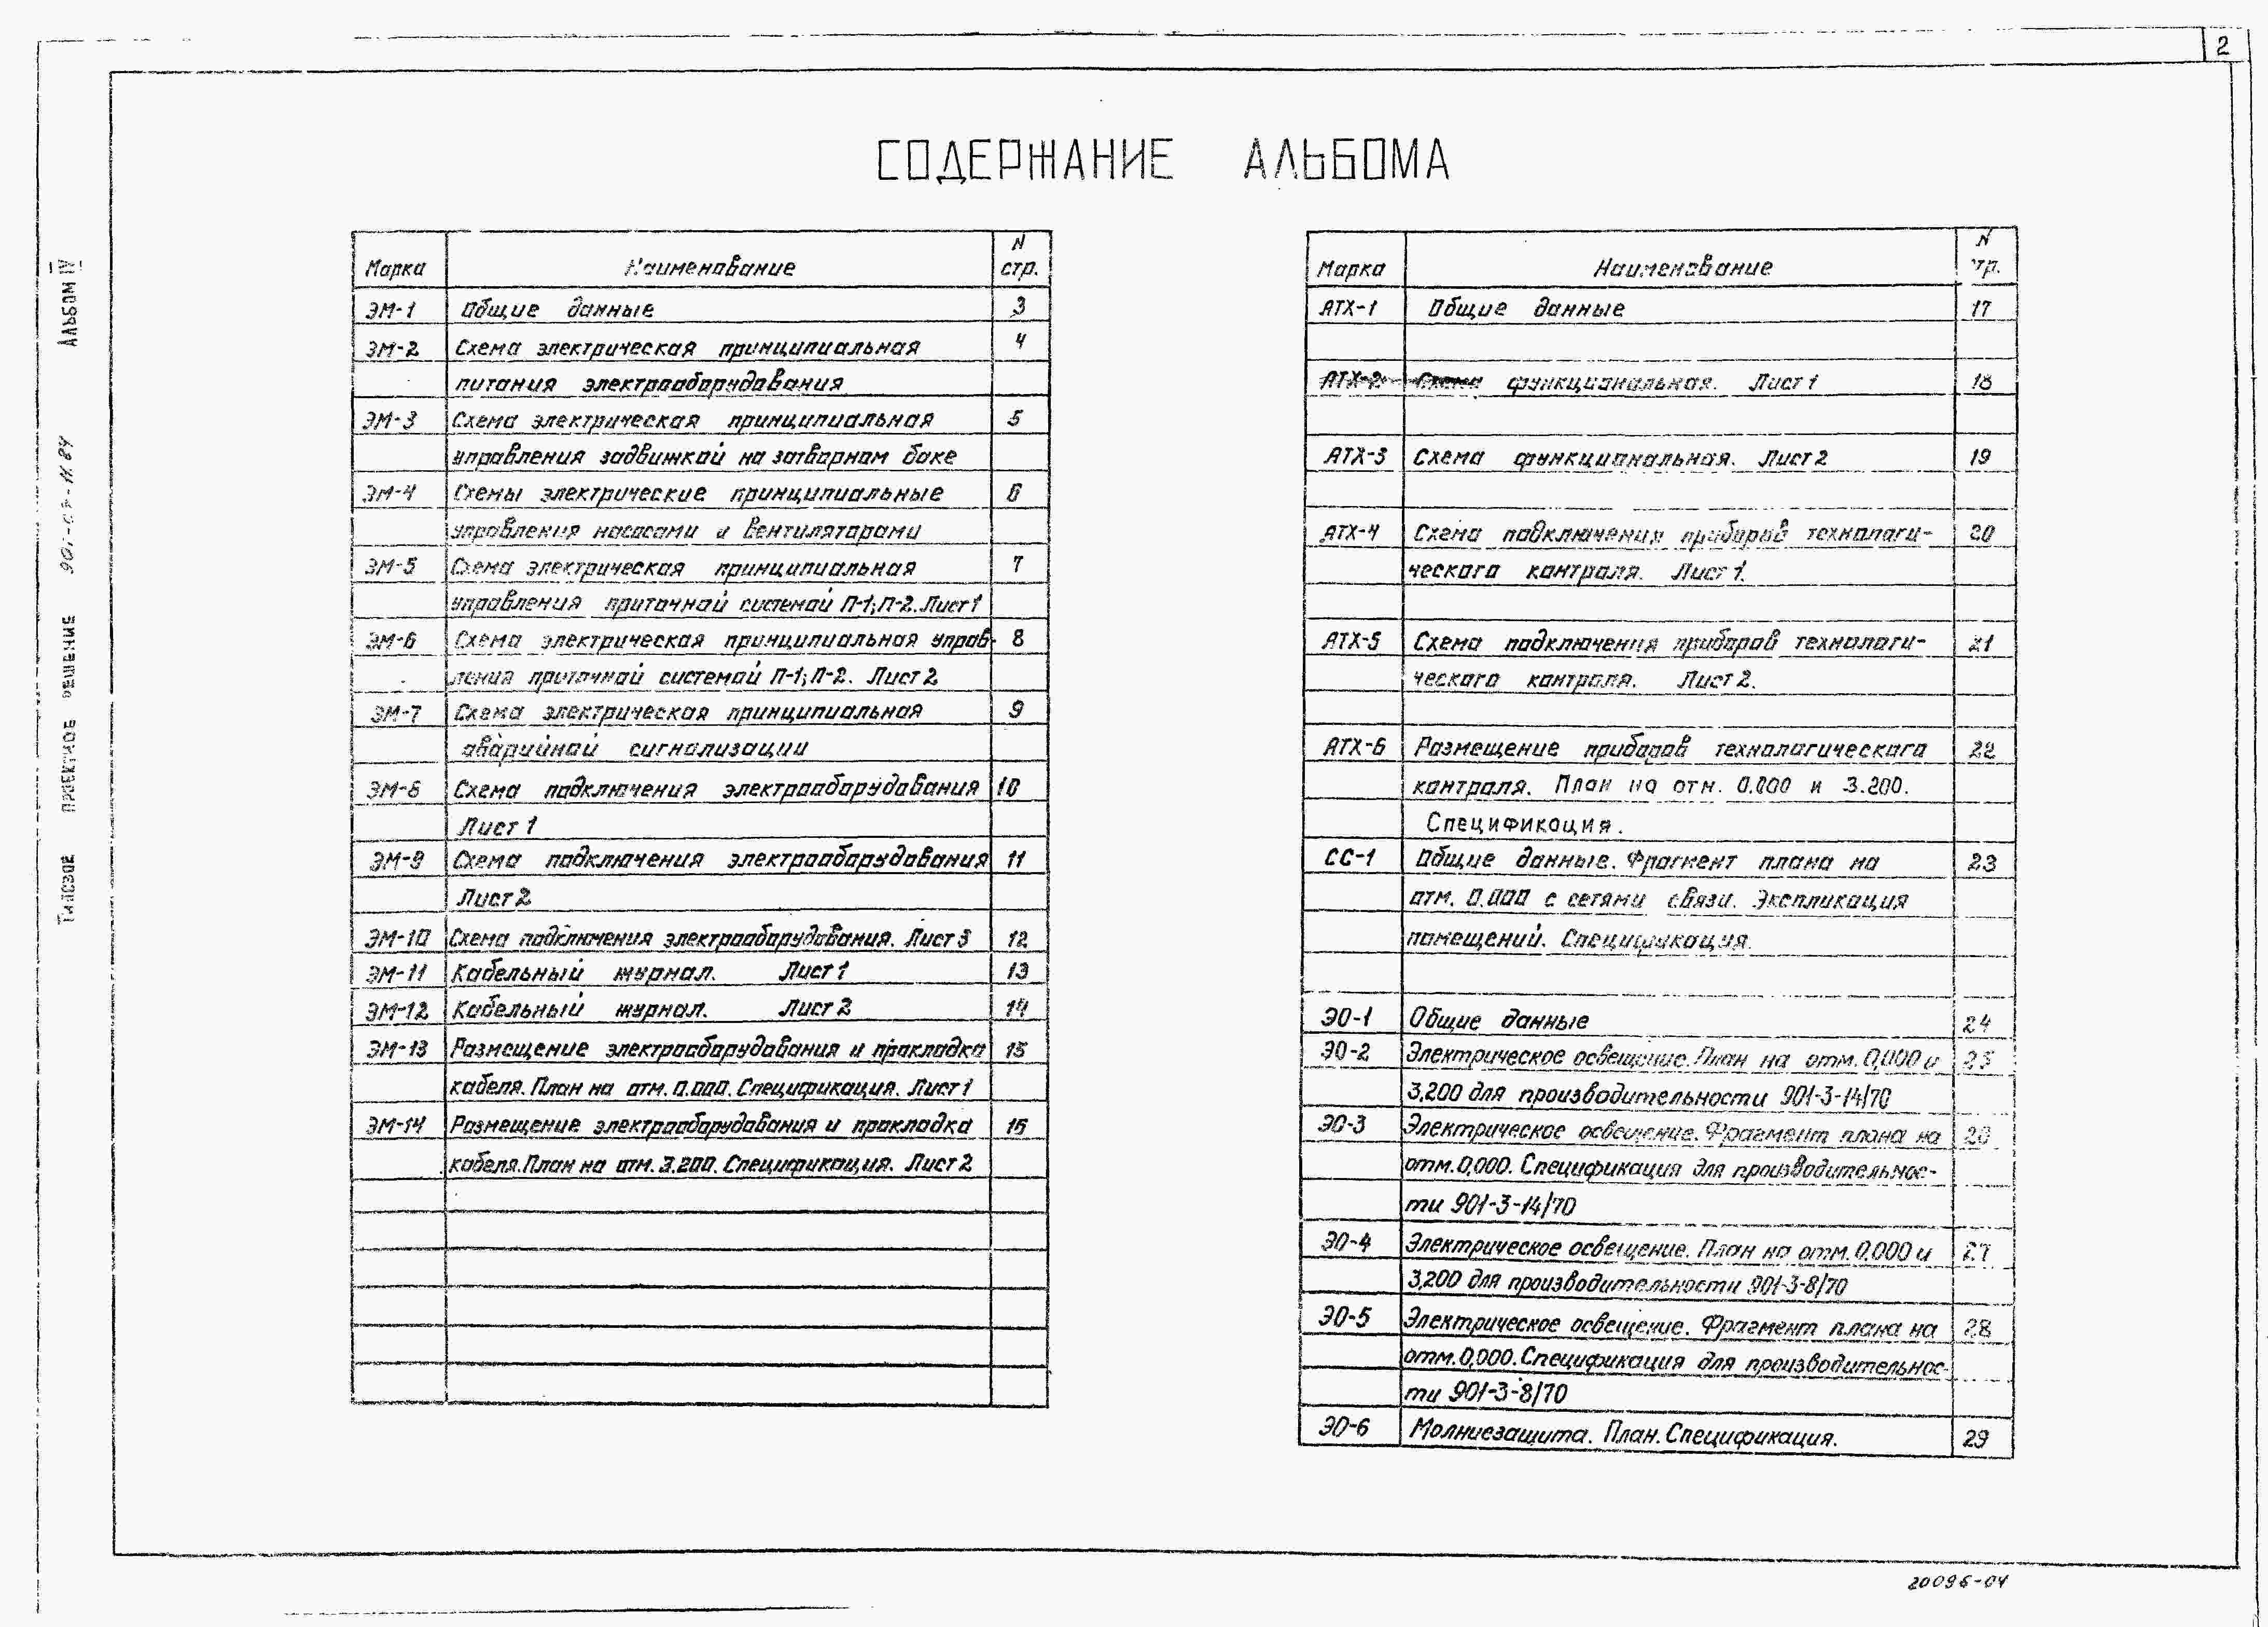 2
СОДЕРЖАНИЕ АЛЬБОМА
Марка Наименование N стр.
ЭМ-1 Общие данные 3
ЭМ-2 Схема электрическая принципиальная 4
питания электрооборудования
ЭМ-3 Схема электрическая принципиальная 5
управления задвижкой на затворном баке
ЭМ-4 Схемы электрические принципиальные 6
управления насосами и вентиляторами
ЭМ-5 Схема электрическая принципиальная 7
управления приточной системой П-1; П-2. Лист 1
ЭМ-6 Схема электрическая принципиальная управ- 8
ления приточной системой П-1; П-2. Лист 2
ЭМ-7 Схема электрическая принципиальная 9
аварийной сигнализации
ЭМ-8 Схема подключения электрооборудования 10
Лист 1
ЭМ-9 Схема подключения электрооборудования 11
Лист 2
ЭМ-10 Схема подключения электрооборудования. Лист 3 12
ЭМ-11 Кабельный журнал. Лист 1 13
ЭМ-12 Кабельный журнал. Лист 2 14
ЭМ-13 Размещение электрооборудования и прокладка 15
кабеля. План на отм. 0.000. Спецификация. Лист 1
ЭМ-14 Размещение электрооборудования и прокладка 16
кабеля. План на отм. 3.200. Спецификация. Лист 2
Марка Наименование N тр.
АТХ-1 Общие данные 17
АТХ-2 Схема функциональная. Лист 1 18
АТХ-3 Схема функциональная. Лист 2 19
АТХ-4 Схема подключения приборов технологи- 20
ческого контроля. Лист 1.
АТХ-5 Схема подключения приборов технологи- 21
ческого контроля. Лист 2.
АТХ-6 Размещение приборов технологического 22
контроля. План на отм. 0.000 и 3.200.
Спецификация.
СС-1 Общие данные. Фрагмент плана на 23
отм. 0.000 с сетями связи. Экспликация
помещений. Спецификация.
ЭО-1 Общие данные 24
ЭО-2 Электрическое освещение. План на отм. 0,000 и 25
3,200 для производительности 901-3-14/70
ЭО-3 Электрическое освещение. Фрагмент плана на 26
отм. 0,000. Спецификация для производительнос-
ти 901-3-14/70
ЭО-4 Электрическое освещение. План на отм. 0,000 и 27
3,200 для производительности 901-3-8/70
ЭО-5 Электрическое освещение. Фрагмент плана на 28
отм. 0,000. Спецификация для производительнос-
ти 901-3-8/70
ЭО-6 Молниезащита. План. Спецификация. 29
Типовое проектное решение АЛЬБОМ IV
20096-04